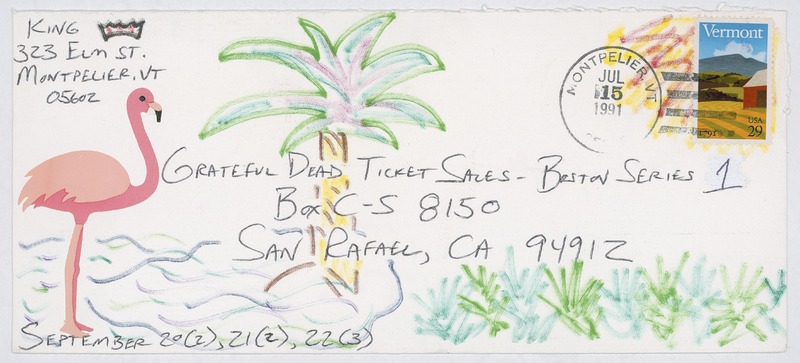 KING
323 ELM ST.
MONTPELIER, VT
05602
MONTPELIER, VT
JUL
15
1991
Vermont
1791
USA
29
GRATEFUL DEAD TICKET SALES - BOSTON SERIES 1
BOX C-S 8150
SAN RAFAEL, CA 94912
SEPTEMBER 20(2), 21(2), 22(3)